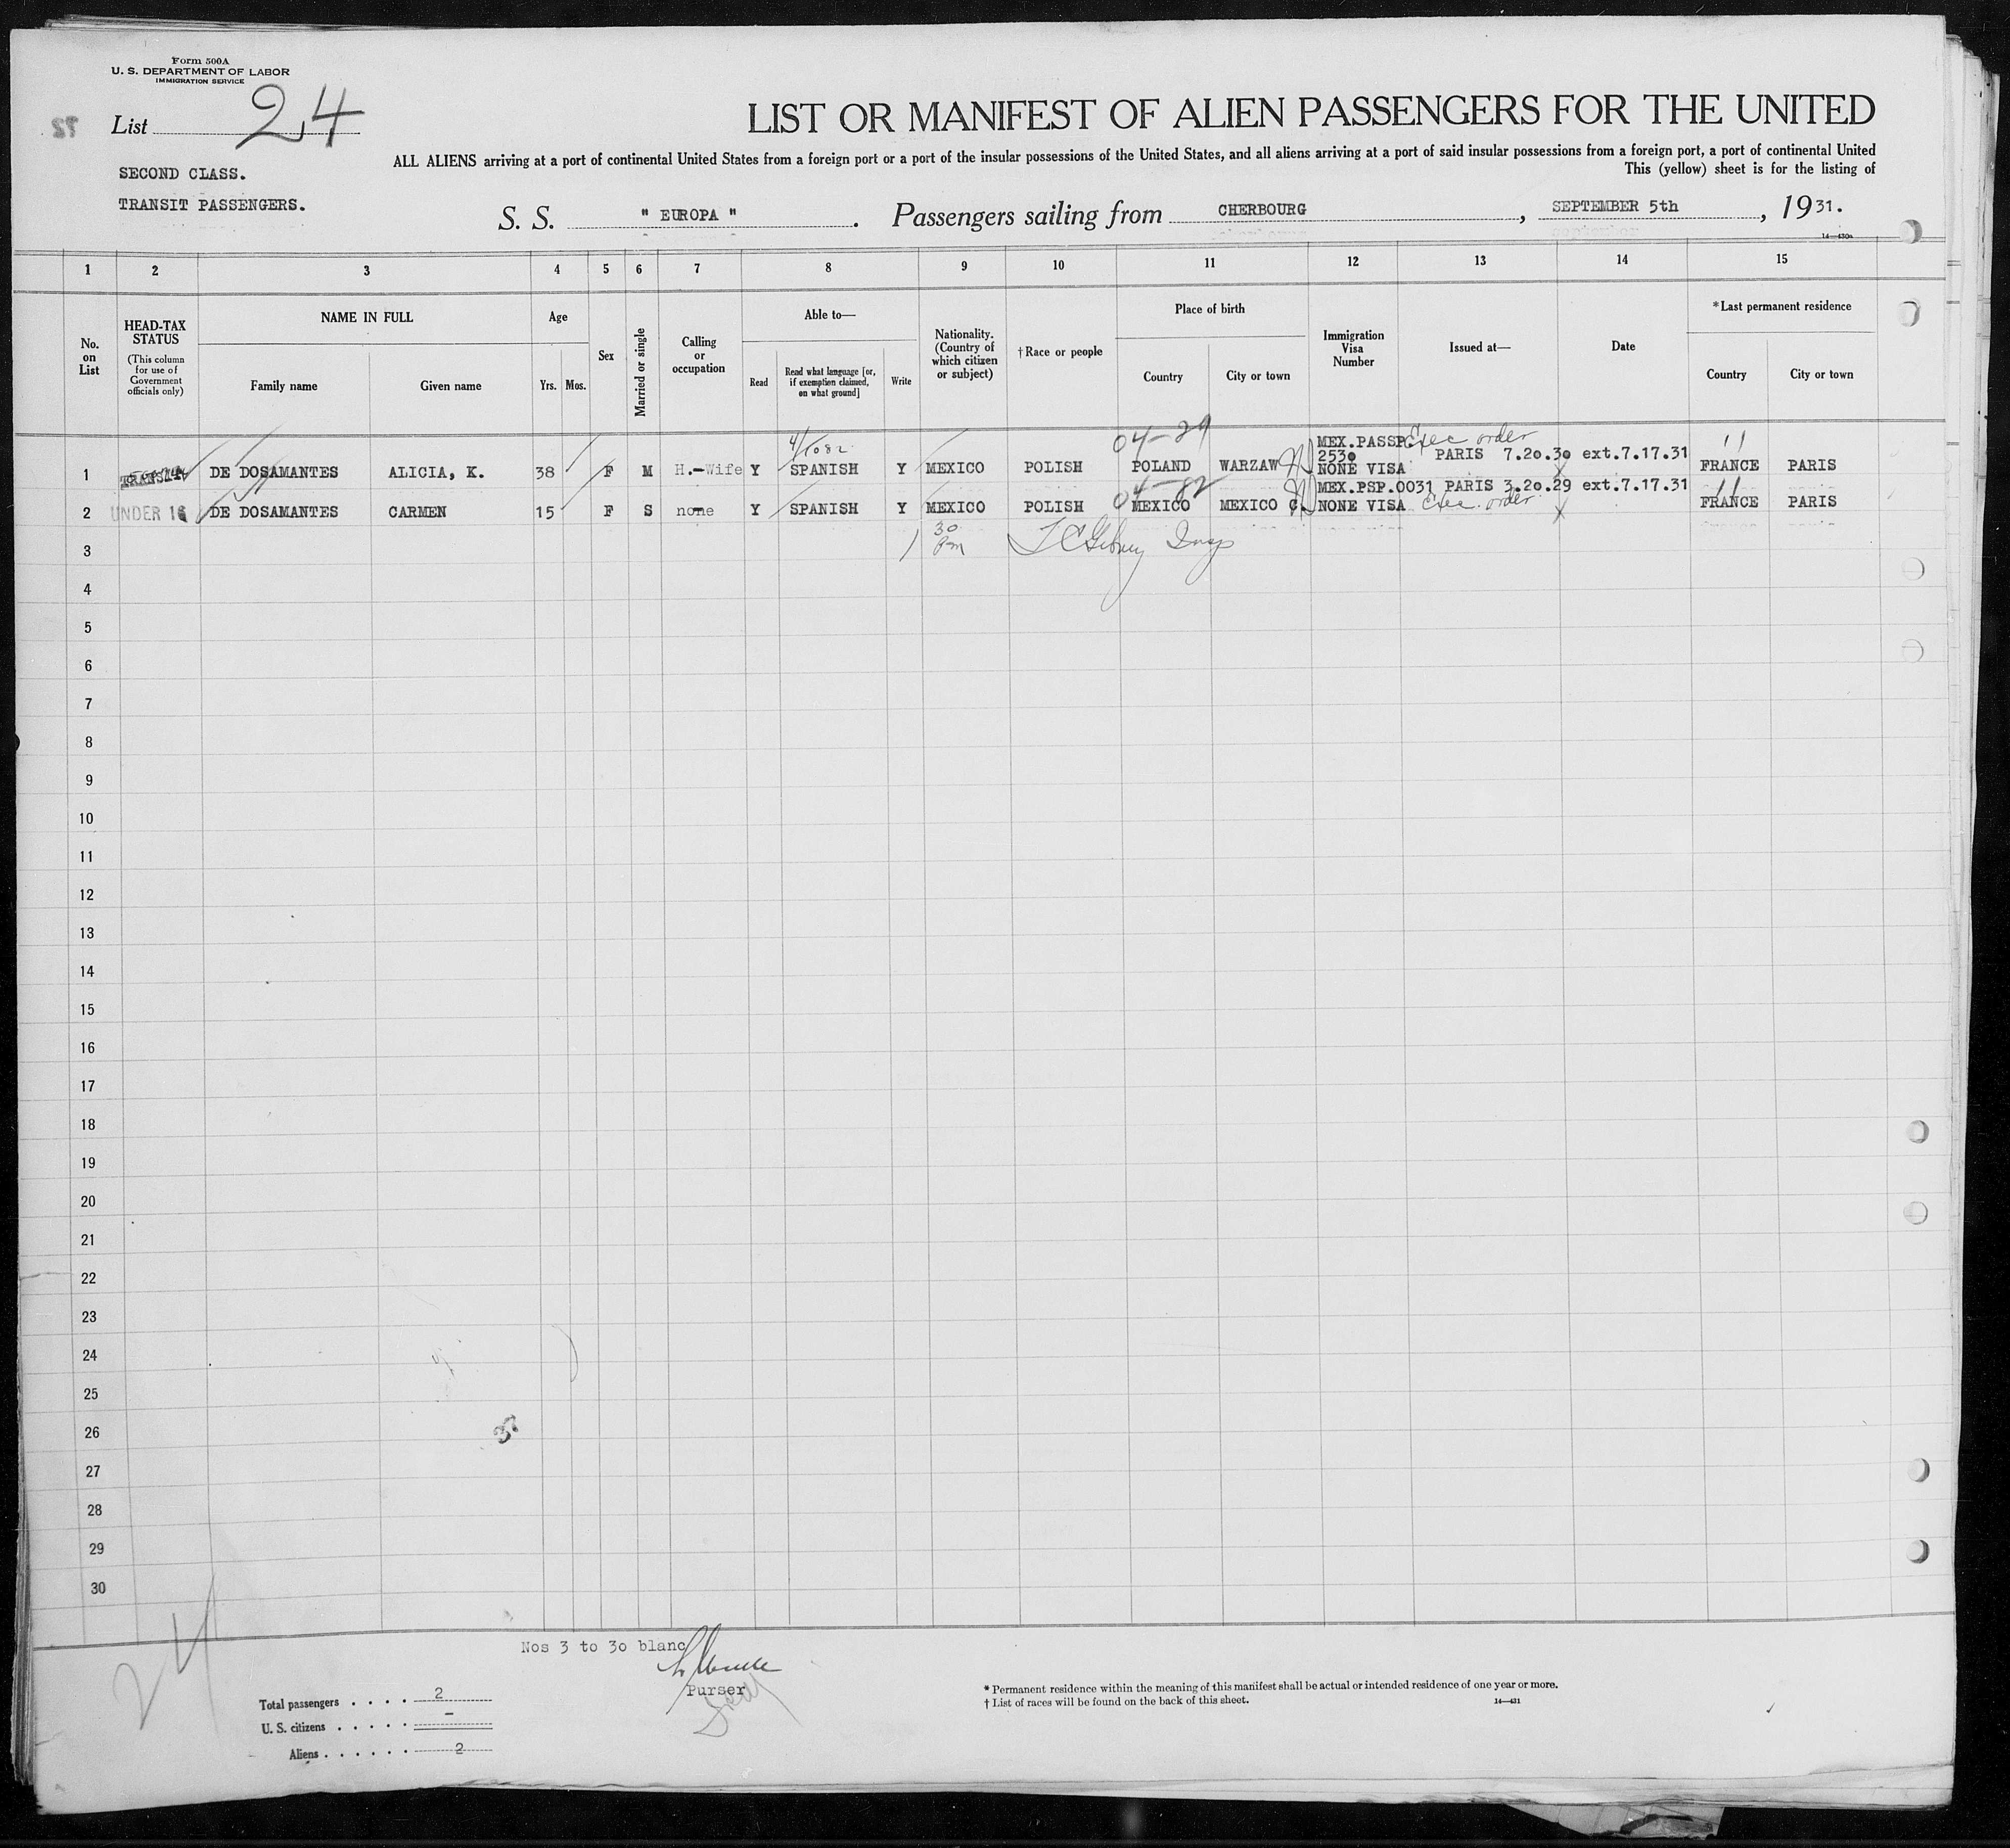 Form 500A
U. S. DEPARTMENT OF LABOR
IMMIGRATION SERVICE
List 24
LIST OR MANIFEST OF ALIEN PASSENGERS FOR THE UNITED
ALL ALIENS arriving at a port of continental United States from a foreign port or a port of the insular possessions of the United States, and all aliens arriving at a port of said insular possessions from a foreign port, a port of continental United
This (yellow) sheet is for the listing of
SECOND CLASS.
TRANSIT PASSENGERS.
S. S. " EUROPA " . Passengers sailing from CHERBOURG , SEPTEMBER 5th , 1931.
14—430a
1 2 3 4 5 6 7 8 9 10 11 12 13 14 15
No. on List
HEAD-TAX STATUS
(This column for use of Government officials only)
NAME IN FULL
Family name Given name
Age
Yrs. Mos.
Sex
Married or single
Calling or occupation
Able to—
Read
Read what language [or, if exemption claimed, on what ground]
Write
Nationality. (Country of which citizen or subject)
† Race or people
Place of birth
Country City or town
Immigration Visa Number
Issued at—
Date
*Last permanent residence
Country City or town
04-29
MEX.PASSP. Exec order
1 TRANSIT DE DOSAMANTES ALICIA, K. 38 F M H.-Wife Y SPANISH Y MEXICO POLISH POLAND WARZAW 2530 NONE VISA PARIS 7.20.30 ext.7.17.31 FRANCE PARIS
04-82
MEX.PSP.0031 PARIS 3.20.29 ext.7.17.31
2 UNDER 16 DE DOSAMANTES CARMEN 15 F S none Y SPANISH Y MEXICO POLISH MEXICO MEXICO C. NONE VISA Exec. order FRANCE PARIS
30
3
4
5
6
7
8
9
10
11
12
13
14
15
16
17
18
19
20
21
22
23
24
25
26
27
28
29
30
24
Nos 3 to 30 blanc
Purser
Total passengers . . . . 2
U. S. citizens . . . . . –
Aliens . . . . . . 2
* Permanent residence within the meaning of this manifest shall be actual or intended residence of one year or more.
† List of races will be found on the back of this sheet. 14—431